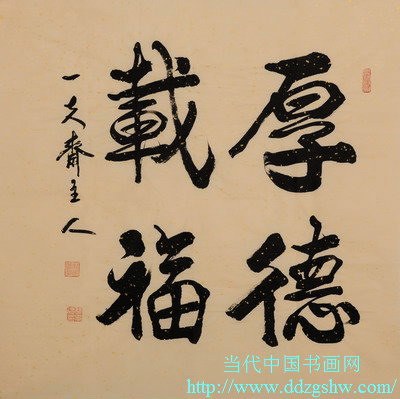 厚德
載福
一久齋主人
当代中国书画网
http://www.ddzgshw.com/